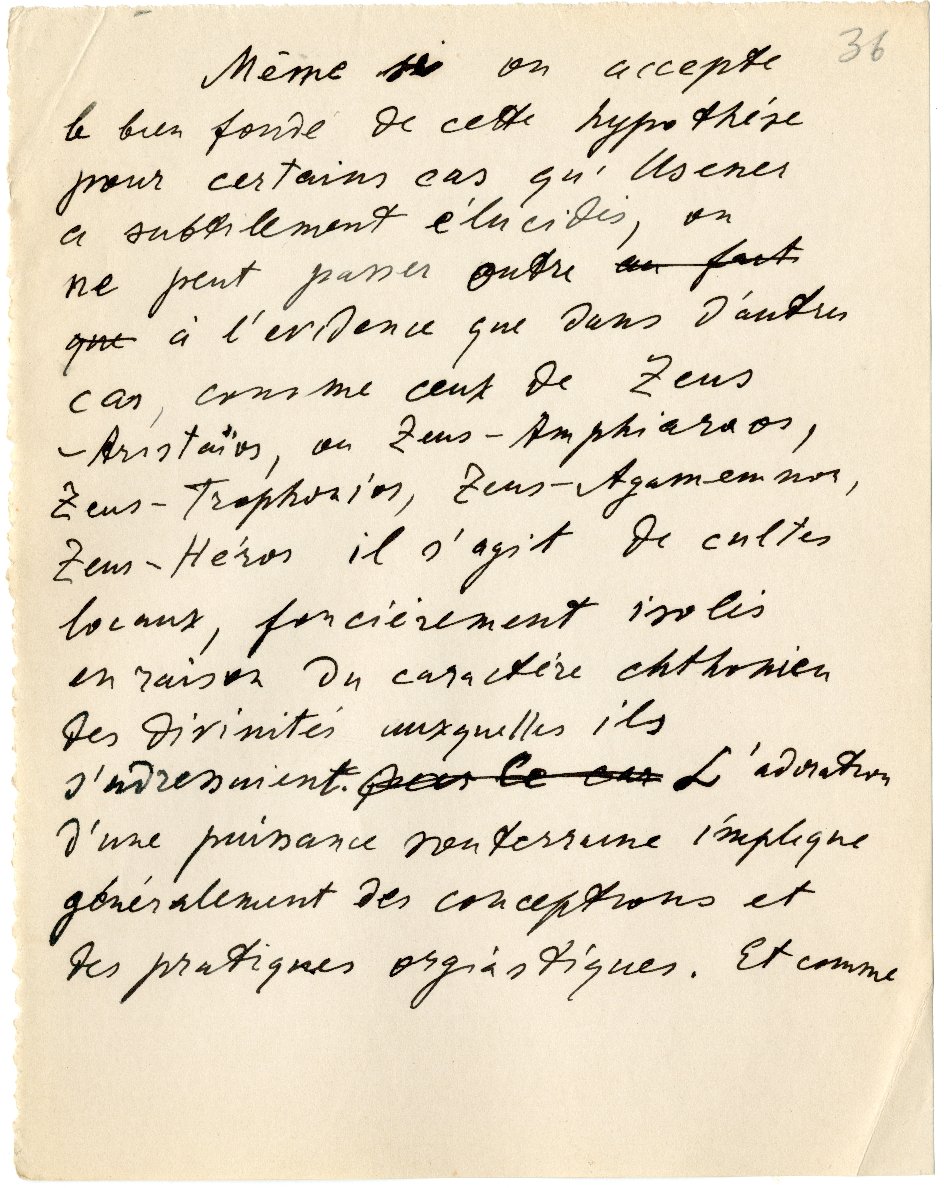 36
Même si on accepte
le bien fondé de cette hypothèse
pour certains cas qu'Usener
a subtilement élucidés, on
ne peut passer outre au fait
que à l'evidence que dans d'autres
cas, comme ceux de Zeus
-Aristaïos, ou Zeus-Amphiaraos,
Zeus-Trophonios, Zeus-Agamemnon,
Zeus-Héros il s'agit de cultes
locaux, foncièrement isolés
en raison du caractère chthonien
des divinités auxquelles ils
s'adressaient. L'adoration
d'une puissance souterraine implique
généralement des conceptions et
des pratiques orgiastiques. Et comme